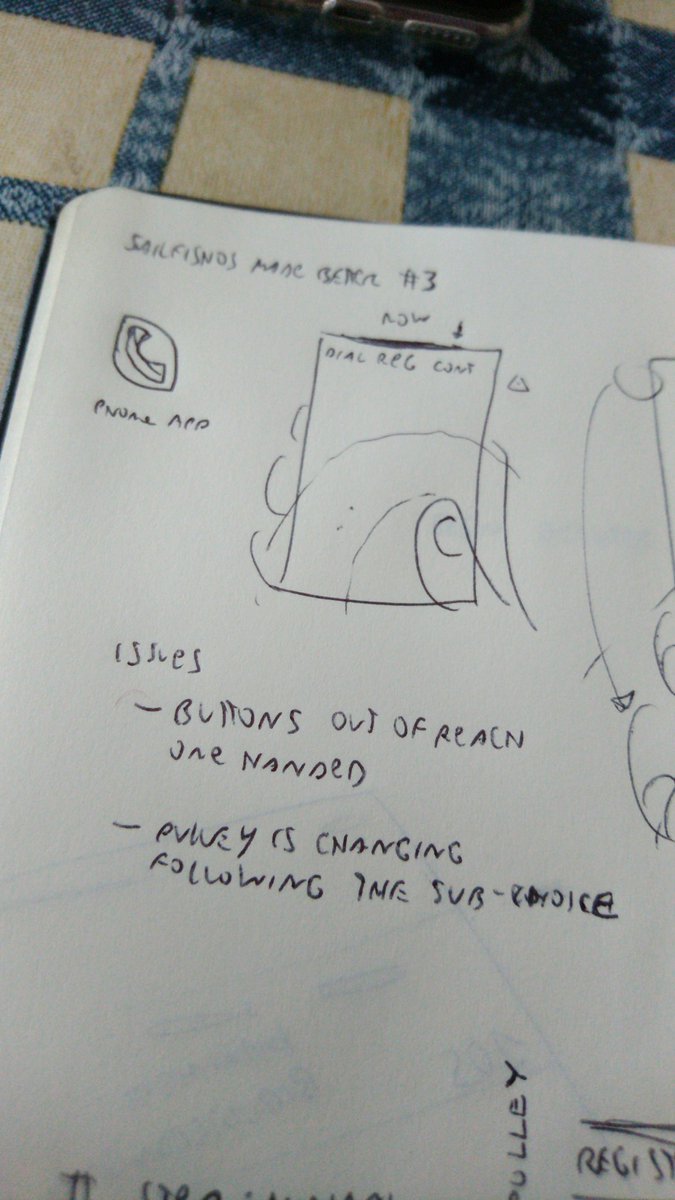 SAILFISHOS MADE BETER #3
NOW
DIAL REG CONT
PHONE APP
ISSUES
- BUTTONS OUT OF REACH
ONE HANDED
- PULLEY IS CHANGING
FOLLOWING THE SUB-CHOICE
PULLEY
REGIST